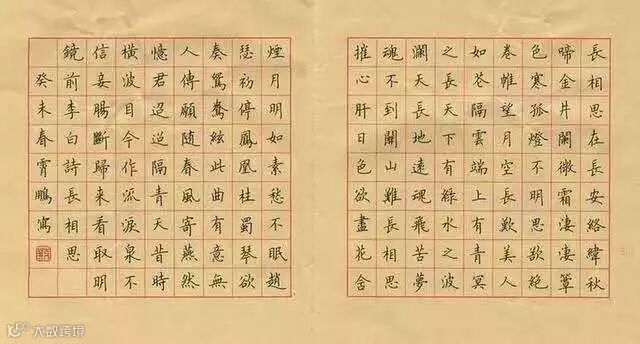 長相思在長安絡緯秋
啼金井闌微霜淒淒簟
色寒孤燈不明思欲絕
卷帷望月空長歎美人
如花隔雲端上有青冥
之長天下有綠水之波
瀾天長地遠魂飛苦夢
魂不到關山難長相思
摧心肝日色欲盡花含
煙月明如素愁不眠趙
瑟初停鳳凰柱蜀琴欲
奏鴛鴦絃此曲有意無
人傳願隨春風寄燕然
憶君迢迢隔青天昔時
橫波目今作流淚泉不
信妾腸斷歸來看取明
鏡前李白詩長相思
癸未春霄鵬寫
大数跨境